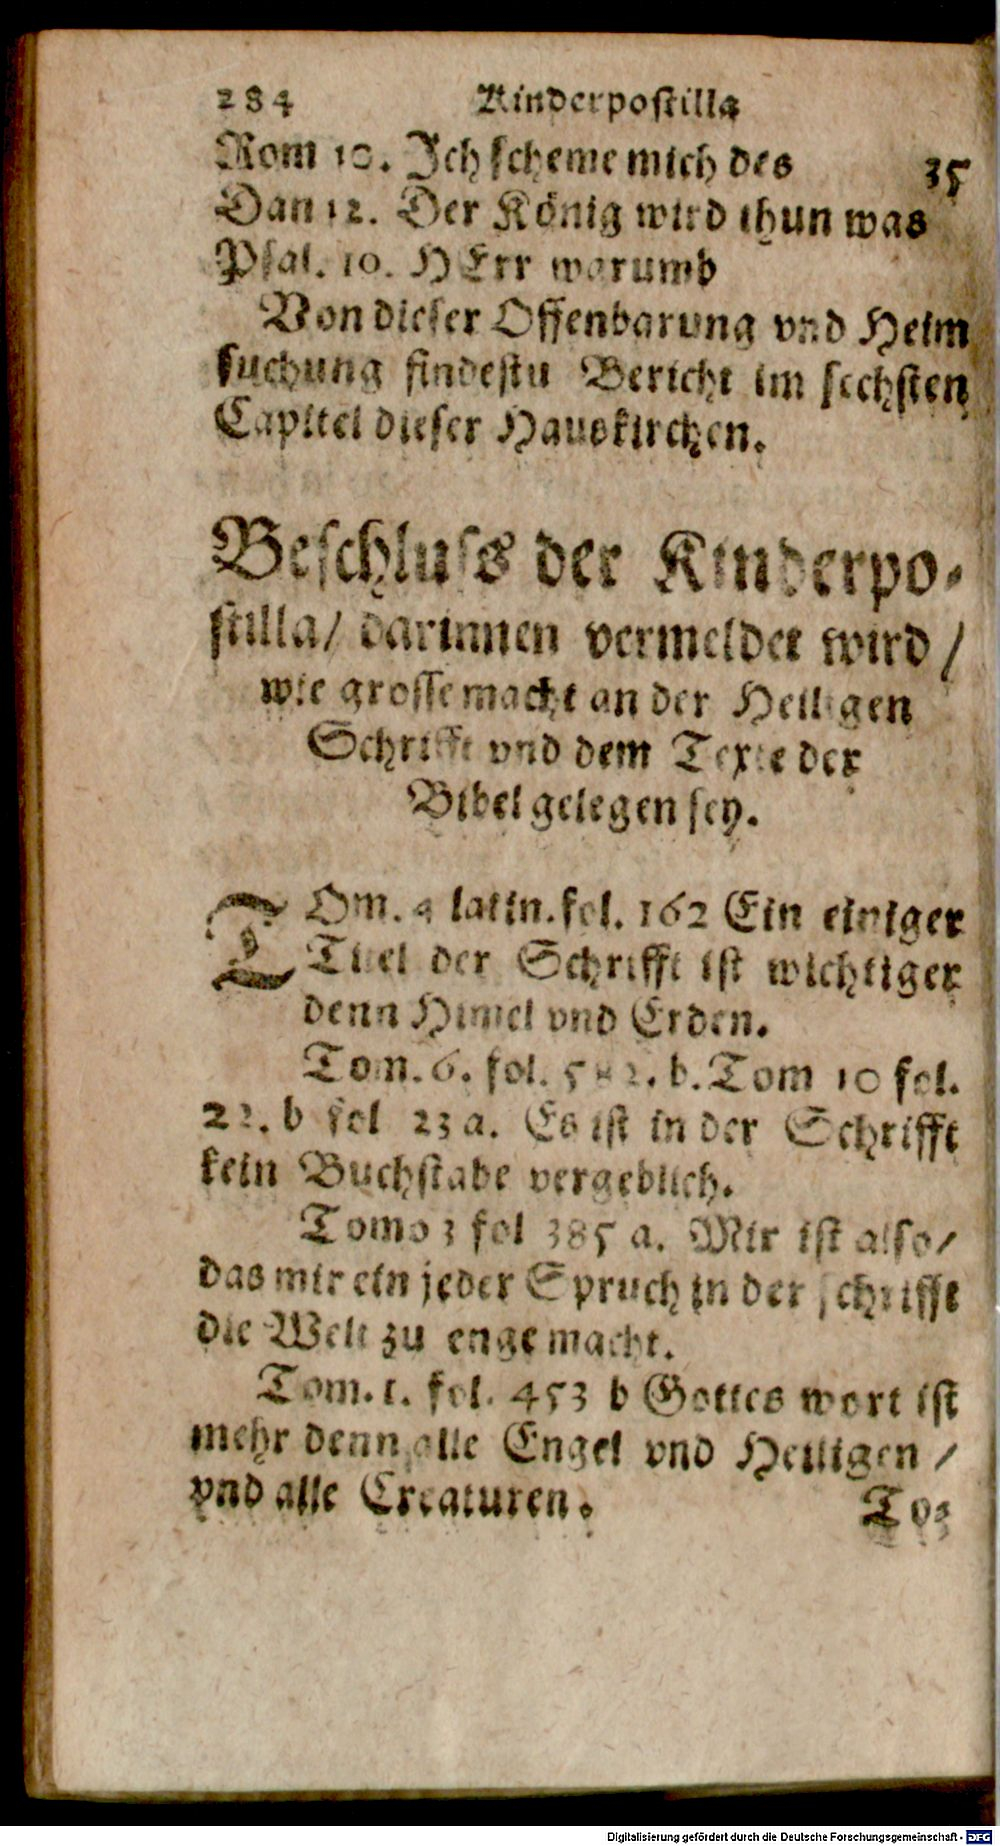 284 Kinderpostilla
Rom 10. Ich scheme mich des 35
Dan 12. Der König wird thun was
Psal. 10. HErr warumb
Von dieser Offenbarung vnd Heim
suchung findestu Bericht im sechsten
Capitel dieser Hauskirchen.
Beschluss der Kinderpo-
stilla/ darinnen vermeldet wird/
wie grosse macht an der Heiligen
Schrifft vnd dem Texte der
Bibel gelegen sey.
TOm. 4 latin. fol. 162 Ein einiger
Titel der Schrifft ist wichtiger
denn Himel vnd Erden.
Tom. 6. fol. b. Tom 10 fol.
22. b fol 23 a. Es ist in der Schrifft
kein Buchstabe vergeblich.
Tomo 3 fol 385 a. Mir ist also/
das mir ein jeder Spruch in der schrifft
die Welt zu enge macht.
Tom. 1. fol. 453 b Gottes wort ist
mehr denn alle Engel vnd Heiligen/
vnd alle Creaturen.
To-
Digitalisierung gefördert durch die Deutsche Forschungsgemeinschaft - DFG